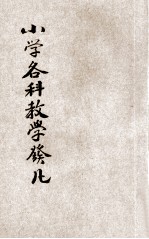 小学各科教學發凡